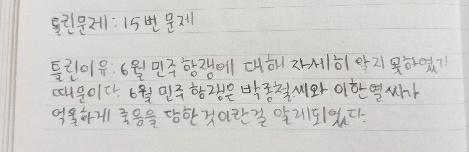 틀린문제: 15번 문제
틀린이유: 6월 민주 항쟁에 대해 자세히 알지 못하였기
때문이다. 6월 민주 항쟁은 박종철씨와 이한열씨가
억울하게 죽음을 당한것이란걸 알게되었다.